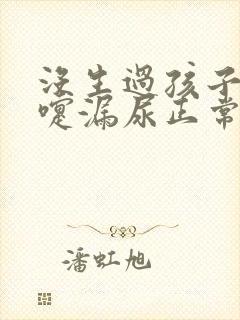 没生過孩子
嚏漏尿正常
潘虹旭